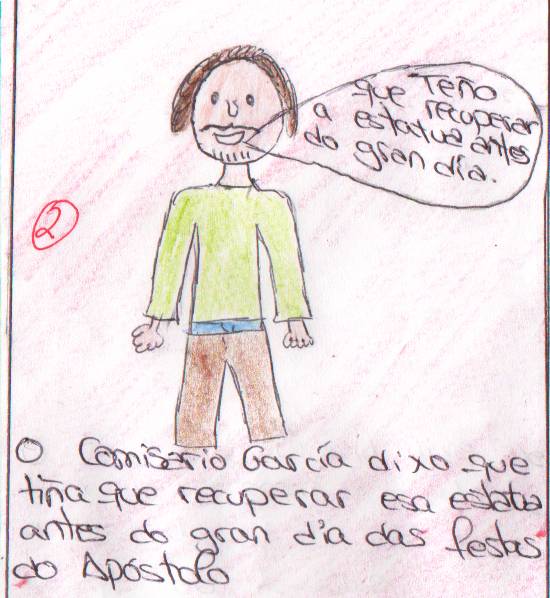 Teño
que recuperar
a estatua antes
do gran día.
2
O Comisario García dixo que
tiña que recuperar esa estatua
antes do gran día das festas
do Apóstolo